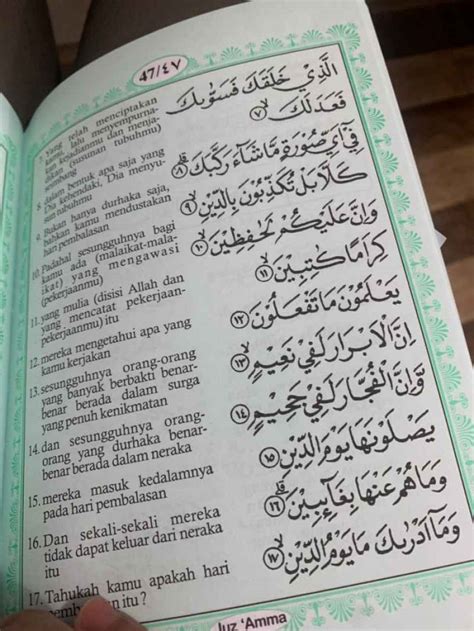 47/٤٧
الَّذِيْ خَلَقَكَ فَسَوّٰىكَ
فَعَدَلَكَ ٧
فِيْٓ اَيِّ صُوْرَةٍ مَّا شَآءَ رَكَّبَكَ ٨
كَلَّا بَلْ تُكَذِّبُوْنَ بِالدِّيْنِ ٩
وَاِنَّ عَلَيْكُمْ لَحٰفِظِيْنَ ١٠
كِرَامًا كٰتِبِيْنَ ١١
يَعْلَمُوْنَ مَا تَفْعَلُوْنَ ١٢
اِنَّ الْاَبْرَارَ لَفِيْ نَعِيْمٍ ١٣
وَّاِنَّ الْفُجَّارَ لَفِيْ جَحِيْمٍ ١٤
يَصْلَوْنَهَا يَوْمَ الدِّيْنِ ١٥
وَمَا هُمْ عَنْهَا بِغَآىِٕبِيْنَ ١٦
وَمَآ اَدْرٰىكَ مَا يَوْمُ الدِّيْنِ ١٧
7. Yang telah menciptakan
kamu lalu menyempurna-
kan kejadianmu dan menja-
dikan (susunan tubuhmu)
seimbang
8. dalam bentuk apa saja yang
Dia kehendaki, Dia menyu-
sun tubuhmu
9. Bukan hanya durhaka saja,
bahkan kamu mendustakan
hari pembalasan
10. Padahal sesungguhnya bagi
kamu ada (malaikat-mala-
ikat) yang mengawasi
(pekerjaanmu)
11. yang mulia (disisi Allah dan
yang mencatat pekerjaan-
pekerjaanmu) itu
12. mereka mengetahui apa yang
kamu kerjakan
13. sesungguhnya orang-orang
yang banyak berbakti benar-
benar berada dalam surga
yang penuh kenikmatan
14. dan sesungguhnya orang-
orang yang durhaka benar-
benar berada dalam neraka
15. mereka masuk kedalamnya
pada hari pembalasan
16. Dan sekali-sekali mereka
tidak dapat keluar dari neraka
itu
17. Tahukah kamu apakah hari
itu ?
Juz 'Amma